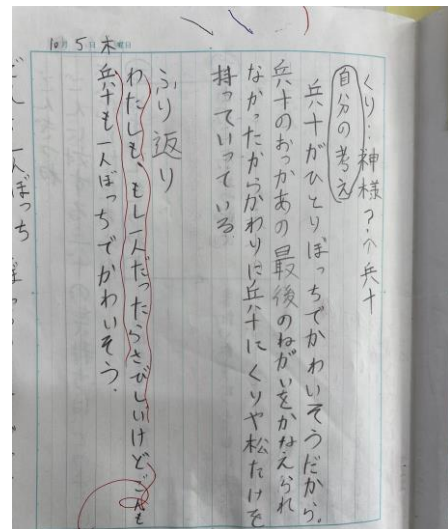 10月5日木曜日
くり…神様？↑兵十
自分の考え
兵十がひとりぼっちでかわいそうだから、
兵十のおっかあの最後のねがいをかなえられ
なかったからかわりに兵十にくりや松たけを
持っていっている。
ふり返り
わたしも、もし一人だったらさびしいけど、ごんも
兵十も一人ぼっちでかわいそう。
一人ぼっち